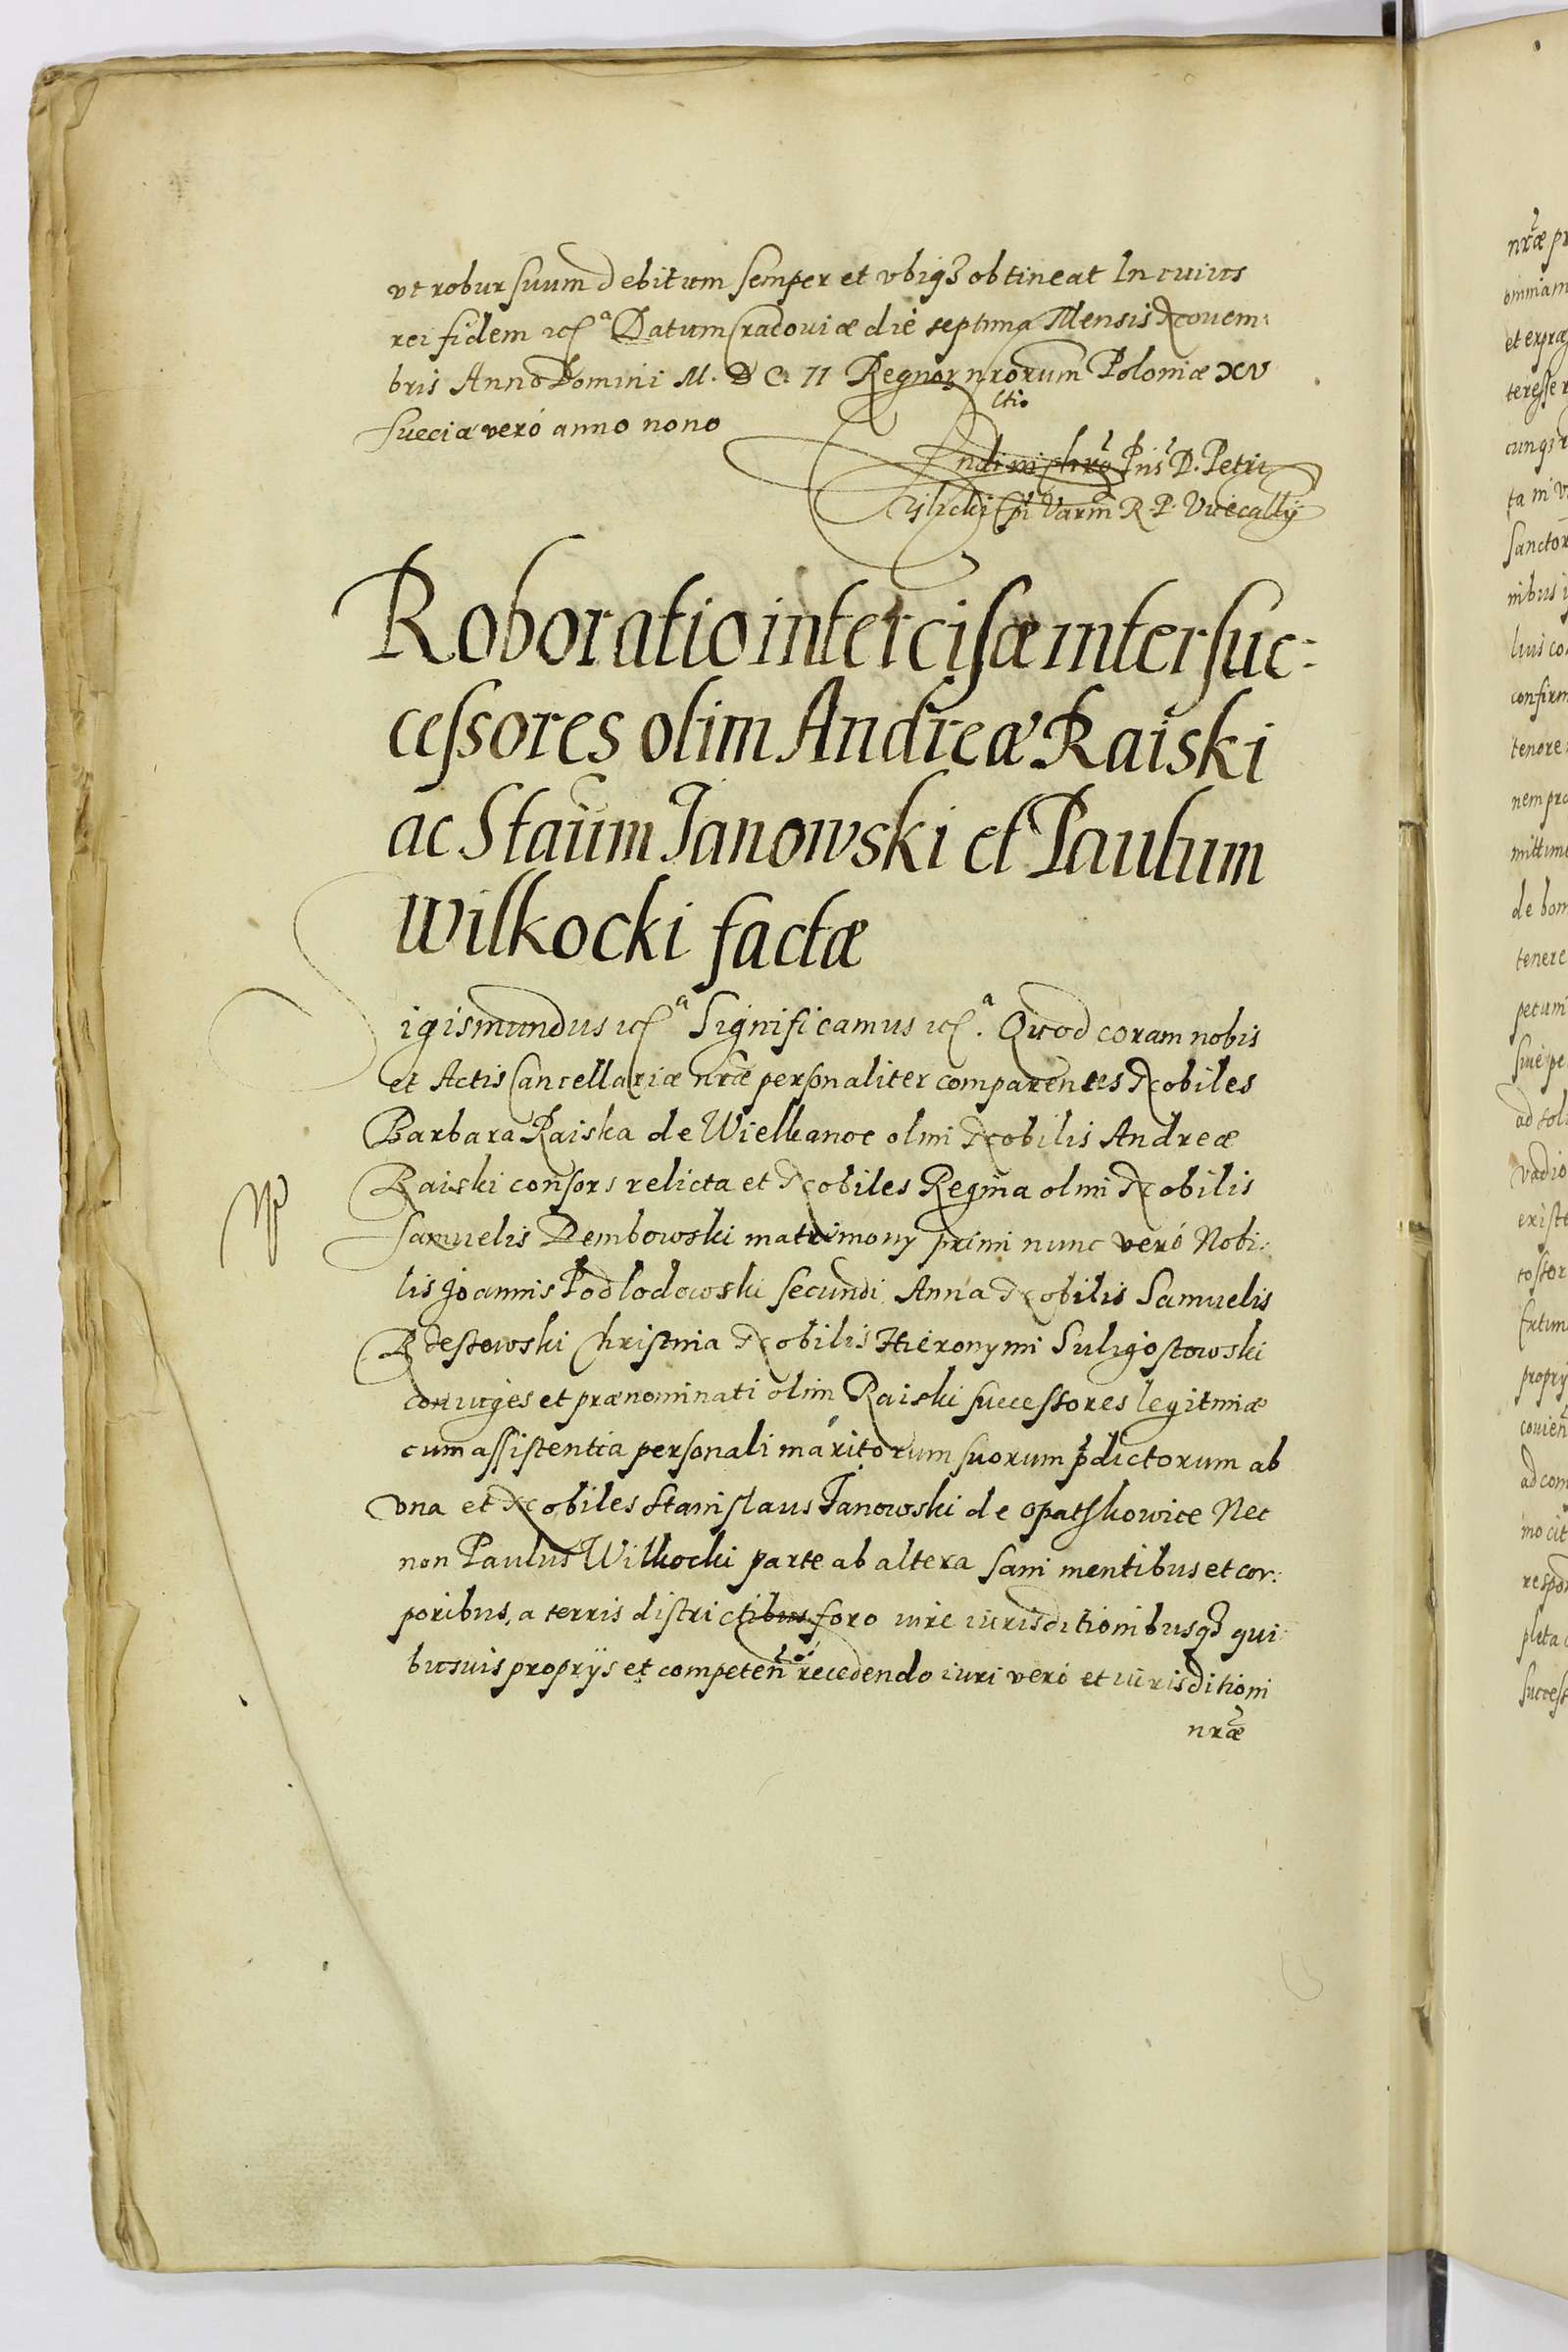 vt robur suum debitum semper et vbiq3 obtineat In cuius
rei fidem etc a Datum Cracouiæ die septima Mensis Nouem:
bris Anno Domini M. D C. II Regnor nrorum Poloniæ XV
Sueciæ veró anno nono
ctio
Petri
Tylicki Epi Varm R. P. Vicecallÿ
Roboratio intercisæ inter suc:
cessores olim Andreæ Raiski
ac Staum Janowski et Paulum
Wilkocki factæ
Sigismundus etc a Significamus etc a. Quod coram nobis
et Actis Cancellariæ nræ personaliter comparentes Nobiles
Barbara Raiska de Wielkanoc olim Nobilis Andreæ
Raiski consors relicta et Nobiles Regina olim Nobilis
Samuelis Dembowski matrimony primi nunc veró Nobi:
lis Joannis Podlodowski secundi Anna Nobilis Samuelis
Rdestowski Christina Nobilis Hieronymi Suligostowski
coniuges et prænominati olim Raiski successores legitimæ
cum assistentia personali maritorum suorum pdictorum ab
vna et Nobiles Stanislaus Janowski de Opatskowice Nec
non Paulus Wilkocki parte ab altera sani mentibus et cor:
poribus, a terris districtibus foro iure iurisditionibusq3 qui:
busuis proprÿs et competen recedendo iuri veró et iurisditioni
nræ
nræ pr
omniam
et expræ
teresse n
cunq3
ta in v
Sanctor
nibus i
lius co
confirm
tenore
nem pro
mittim
de bon
tenere
pecuni
siue pe
ad sol
vadio
existe
propry
ad com
mo cit
respon
pleta
success